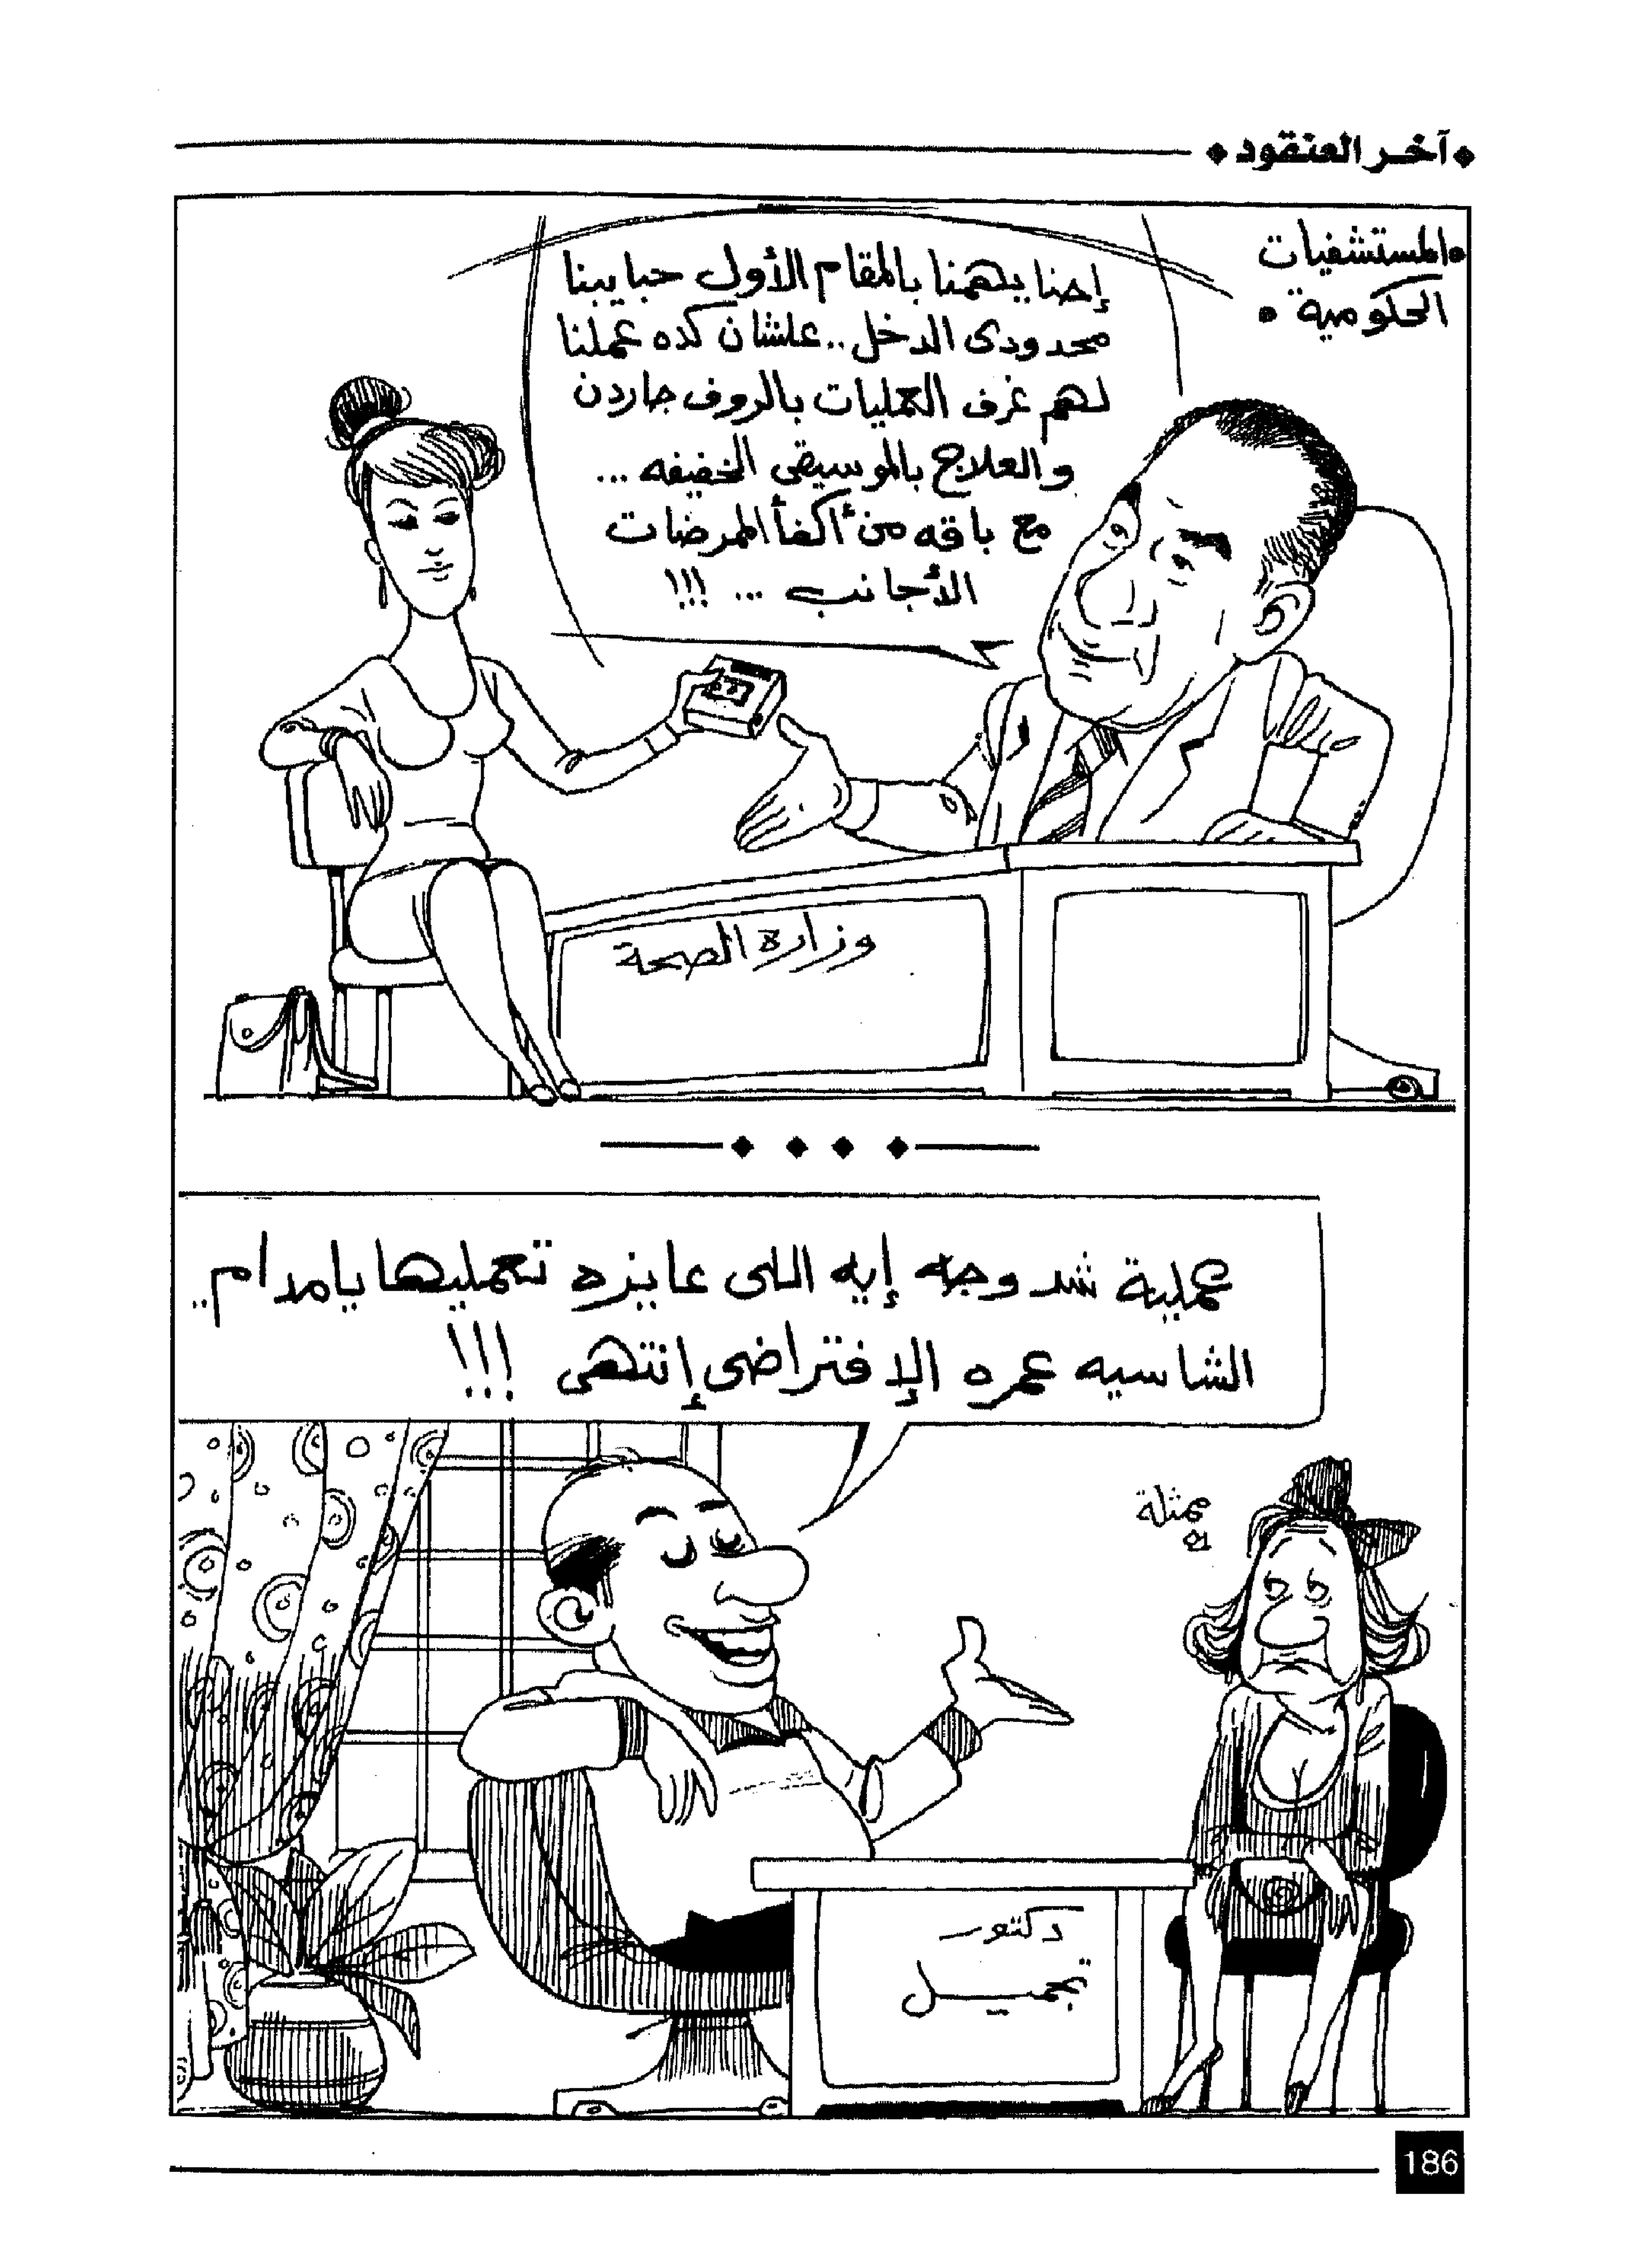 آخر العنقود
المستشفيات
الحكومية
إحنا يهمنا بالمقام الأول حبايبنا
محدودى الدخل .. علشان كده عملنا
لهم غرف العمليات بالروف جاردن
والعلاج بالموسيقى الخفيفه ...
مع باقه من أكفأ الممرضات
الأجانب ... !!!
وزارة الصحة
عملية شد وجه إيه اللى عايزه تعمليها يا مدام ..
الشاسيه عمره الإفتراضى إنتهى !!!
ممثلة
دكتور
تجميل
186